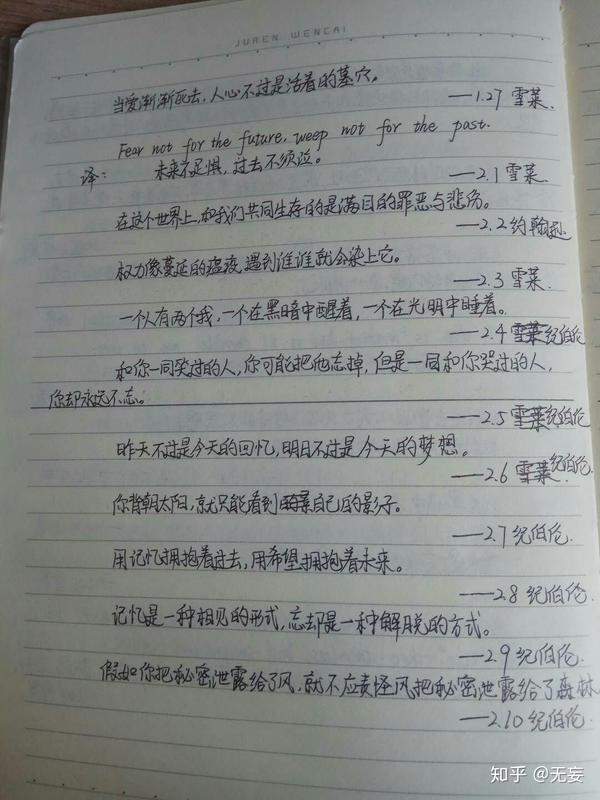 JUREN WENCAI
当爱渐渐死去，人心不过是活着的墓穴。
——1.27 雪莱.
Fear not for the future, weep not for the past.
译： 未来不足惧，过去不须泣。
——2.1 雪莱.
在这个世界上，和我们共同生存的是满目的罪恶与悲伤。
——2.2 约翰逊
权力像蔓延的瘟疫，遇到谁谁就会染上它。
——2.3 雪莱.
一个人有两个我，一个在黑暗中醒着，一个在光明中睡着。
——2.4 雪莱纪伯伦
和你一同笑过的人，你可能把他忘掉，但是一同和你哭过的人，
你却永远不忘。
——2.5 雪莱纪伯伦
昨天不过是今天的回忆，明日不过是今天的梦想。
——2.6 雪莱纪伯伦.
你背朝太阳，就只能看到自己的影子。
——2.7 纪伯伦.
用记忆拥抱着过去，用希望拥抱着未来。
——2.8 纪伯伦.
记忆是一种相见的形式，忘却是一种解脱的方式。
——2.9 纪伯伦.
假如你把秘密泄露给了风，就不应责怪风把秘密泄露给了森林
——2.10 纪伯伦.
知乎 @无妄